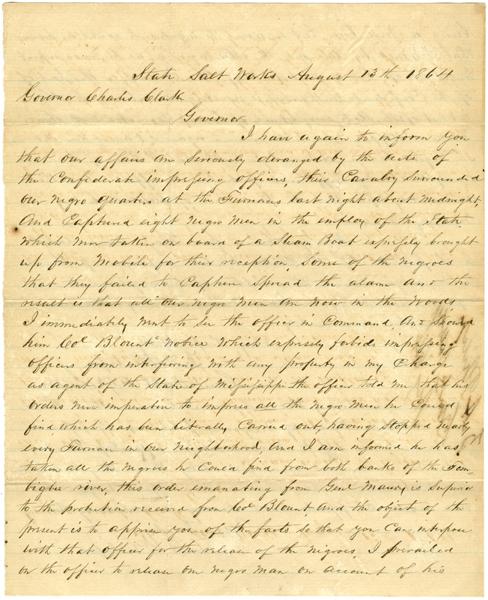 State Salt Works August 13th 1864
Governor Charles Clark
Governor
I have again to inform you
that our affairs are Seriously deranged by the acts of
the Confederate impressing officers, their Cavalry Surrounded
our negro quarters at the Furnaces last night about midnight,
And Captured eight Negro Men in the employ of the State
which were taken on board of a Steam Boat expressly brought
up from Mobile for their reception. Some of the negroes
that they failed to Capture Spread the alarm and the
result is that all our negro Men are now in the Woods
I immediately went to See the officer in Command, And Showed
him Col Blount notice which expressly forbids impressing
officers from interfering with any property in my Charge
as agent of the State of Mississippi the officer told me that his
orders were imperative to impress all the Negro Men he Could
find which has been literally Carried out, having Stopped nearly
every Furnace in our Neighborhood, And I am informed he has
taken all the Negroes he Could find from both banks of the Tom-
bigbee river, this order emanating from Genl Maury is Superior
to the protection received from Col Blount And the object of the
present is to apprise you of the facts So that you Can interpose
with that officer for the release of the negroes. I prevailed
on the officer to release one negro man on account of his